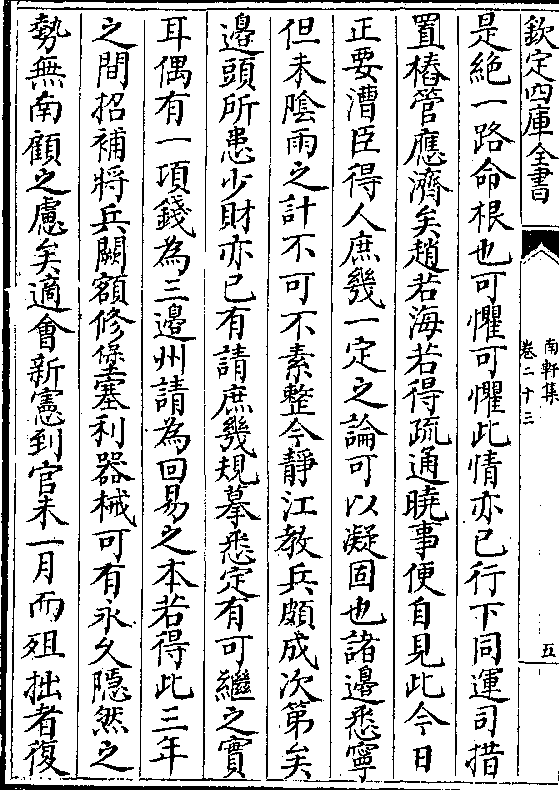 欽定四庫全書
南軒集
卷二十三
五
是絶一路命根也可懼可懼此情亦已行下同運司措
置樁管應濟矣趙若海若得疏通曉事便自見此今日
正要漕臣得人庶幾一定之論可以凝固也諸邊悉寧
但未陰雨之計不可不素整今靜江教兵頗成次第矣
邊頭所患少財亦已有請庶幾規摹悉定有可繼之實
耳偶有一項錢為三邊州請為回易之本若得此三年
之間招補將兵闕額修堡塞利器械可有永久隱然之
勢無南顧之慮矣適會新憲到官未一月而殂拙者復